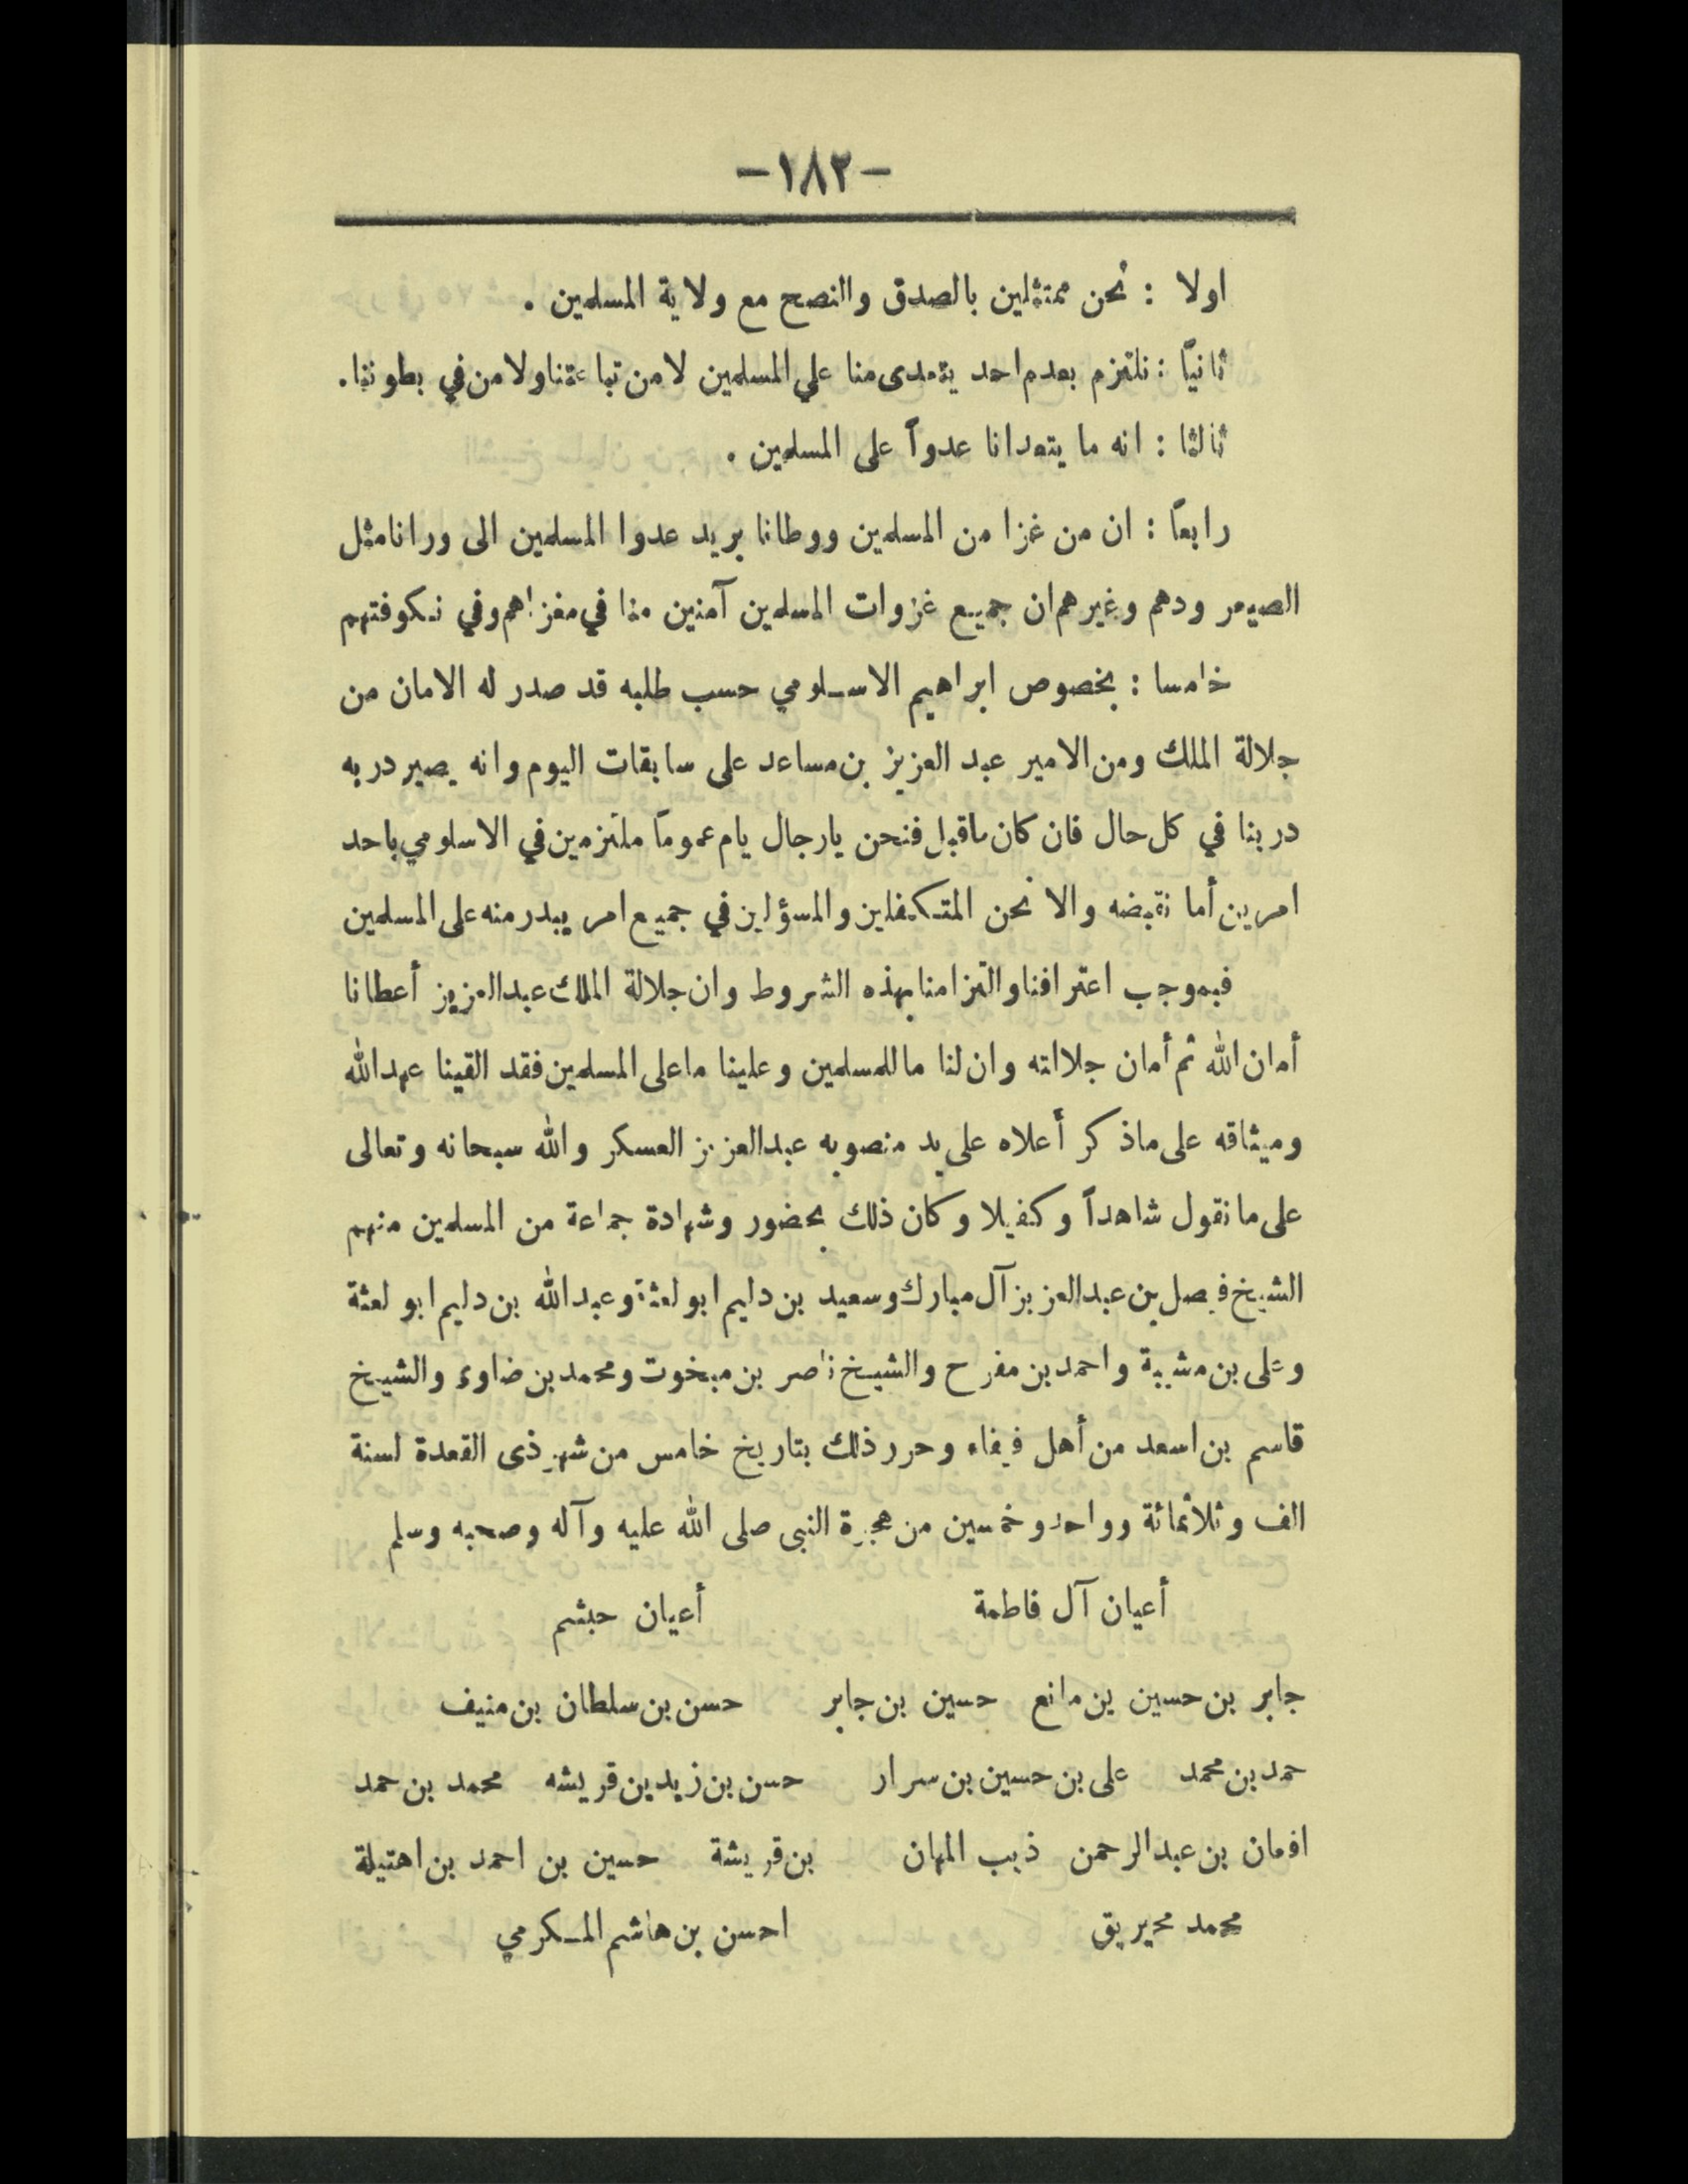 -١٨٢-
اولا : نحن ممتثلين بالصدق والنصح مع ولاية المسلمين .
ثانيًا : نلتزم بعدم احد يتعدى منا علي المسلمين لا من تباعتنا ولا من في بطوننا .
ثالثا : انه ما يتعدانا عدواً على المسلمين .
رابعًا : ان من غزا من المسلمين ووطانا يريد عدوا المسلمين الى ورانا مثل
الصيعر ودهم وغيرهم ان جميع غزوات المسلمين آمنين منا في مغزاهم وفي نكوفتهم
خامسا : بخصوص ابراهيم الاسلومي حسب طلبه قد صدر له الامان من
جلالة الملك ومن الامير عبد العزيز بن مساعد على سابقات اليوم وانه يصير دربه
دربنا في كل حال فان كان ماقبل فنحن يارجال يام عمومًا ملتزمين في الاسلومي باحد
امرين أما نقبضه والا نحن المتكفلين والمسؤلين في جميع امر يبدر منه على المسلمين
فبموجب اعترافنا والتزامنا بهذه الشروط وان جلالة الملك عبدالعزيز أعطانا
أمان الله ثم أمان جلالته وان لنا ما للمسلمين وعلينا ما على المسلمين فقد القينا عهدالله
وميثاقه على ماذكر أعلاه على يد منصوبه عبدالعزيز العسكر والله سبحانه وتعالى
على ما نقول شاهداً وكفيلا وكان ذلك بحضور وشهادة جماعة من المسلمين منهم
الشيخ فيصل بن عبدالعزيز آل مبارك وسعيد بن دليم ابو لعثة وعبدالله بن دليم ابو لعثة
وعلى بن مشببة واحمد بن مفرح والشيخ ناصر بن مبخوت ومحمد بن ضاوى والشيخ
قاسم بن اسعد من أهل فيفاء وحرر ذلك بتاريخ خامس من شهر ذى القعدة لسنة
الف وثلاثمائة وواحد وخمسين من هجرة النبى صلى الله عليه وآله وصحبه وسلم
أعيان آل فاطمة أعيان حبشم
جابر بن حسين بن مانع حسين بن جابر حسن بن سلطان بن منيف
حمد بن محمد على بن حسين بن سرار حسن بن زيد بن قريشه محمد بن حمد
بن عبدالرحمن ذيب المهان بن قريشة حسين بن احمد بن اهتيلة
محمد محيريق احسن بن هاشم المكرمي